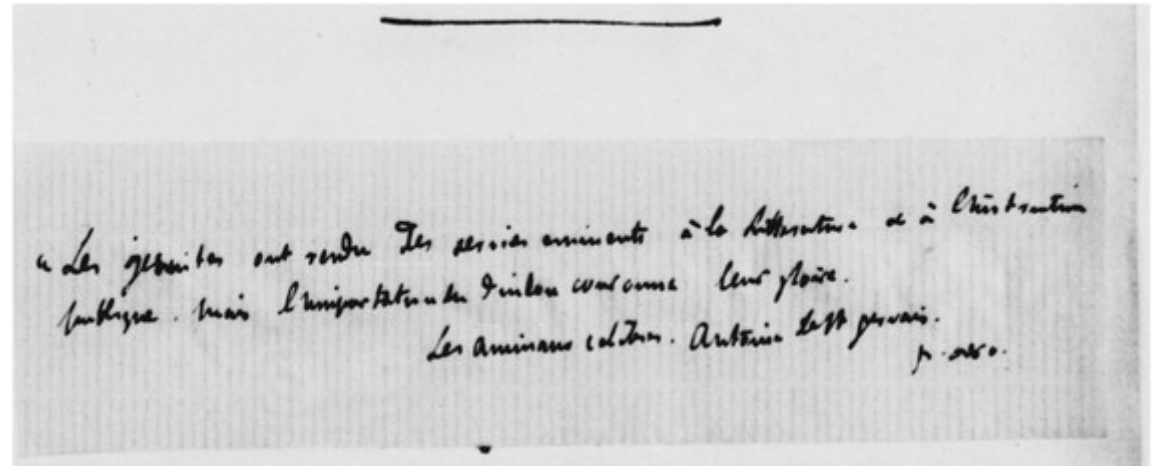 « Les jesuites ont rendu des services eminents à la litterature et à l'instruction
publique. mais l'importation du dindon couronne leur gloire.
Les animaux celebres. Antoine
p.